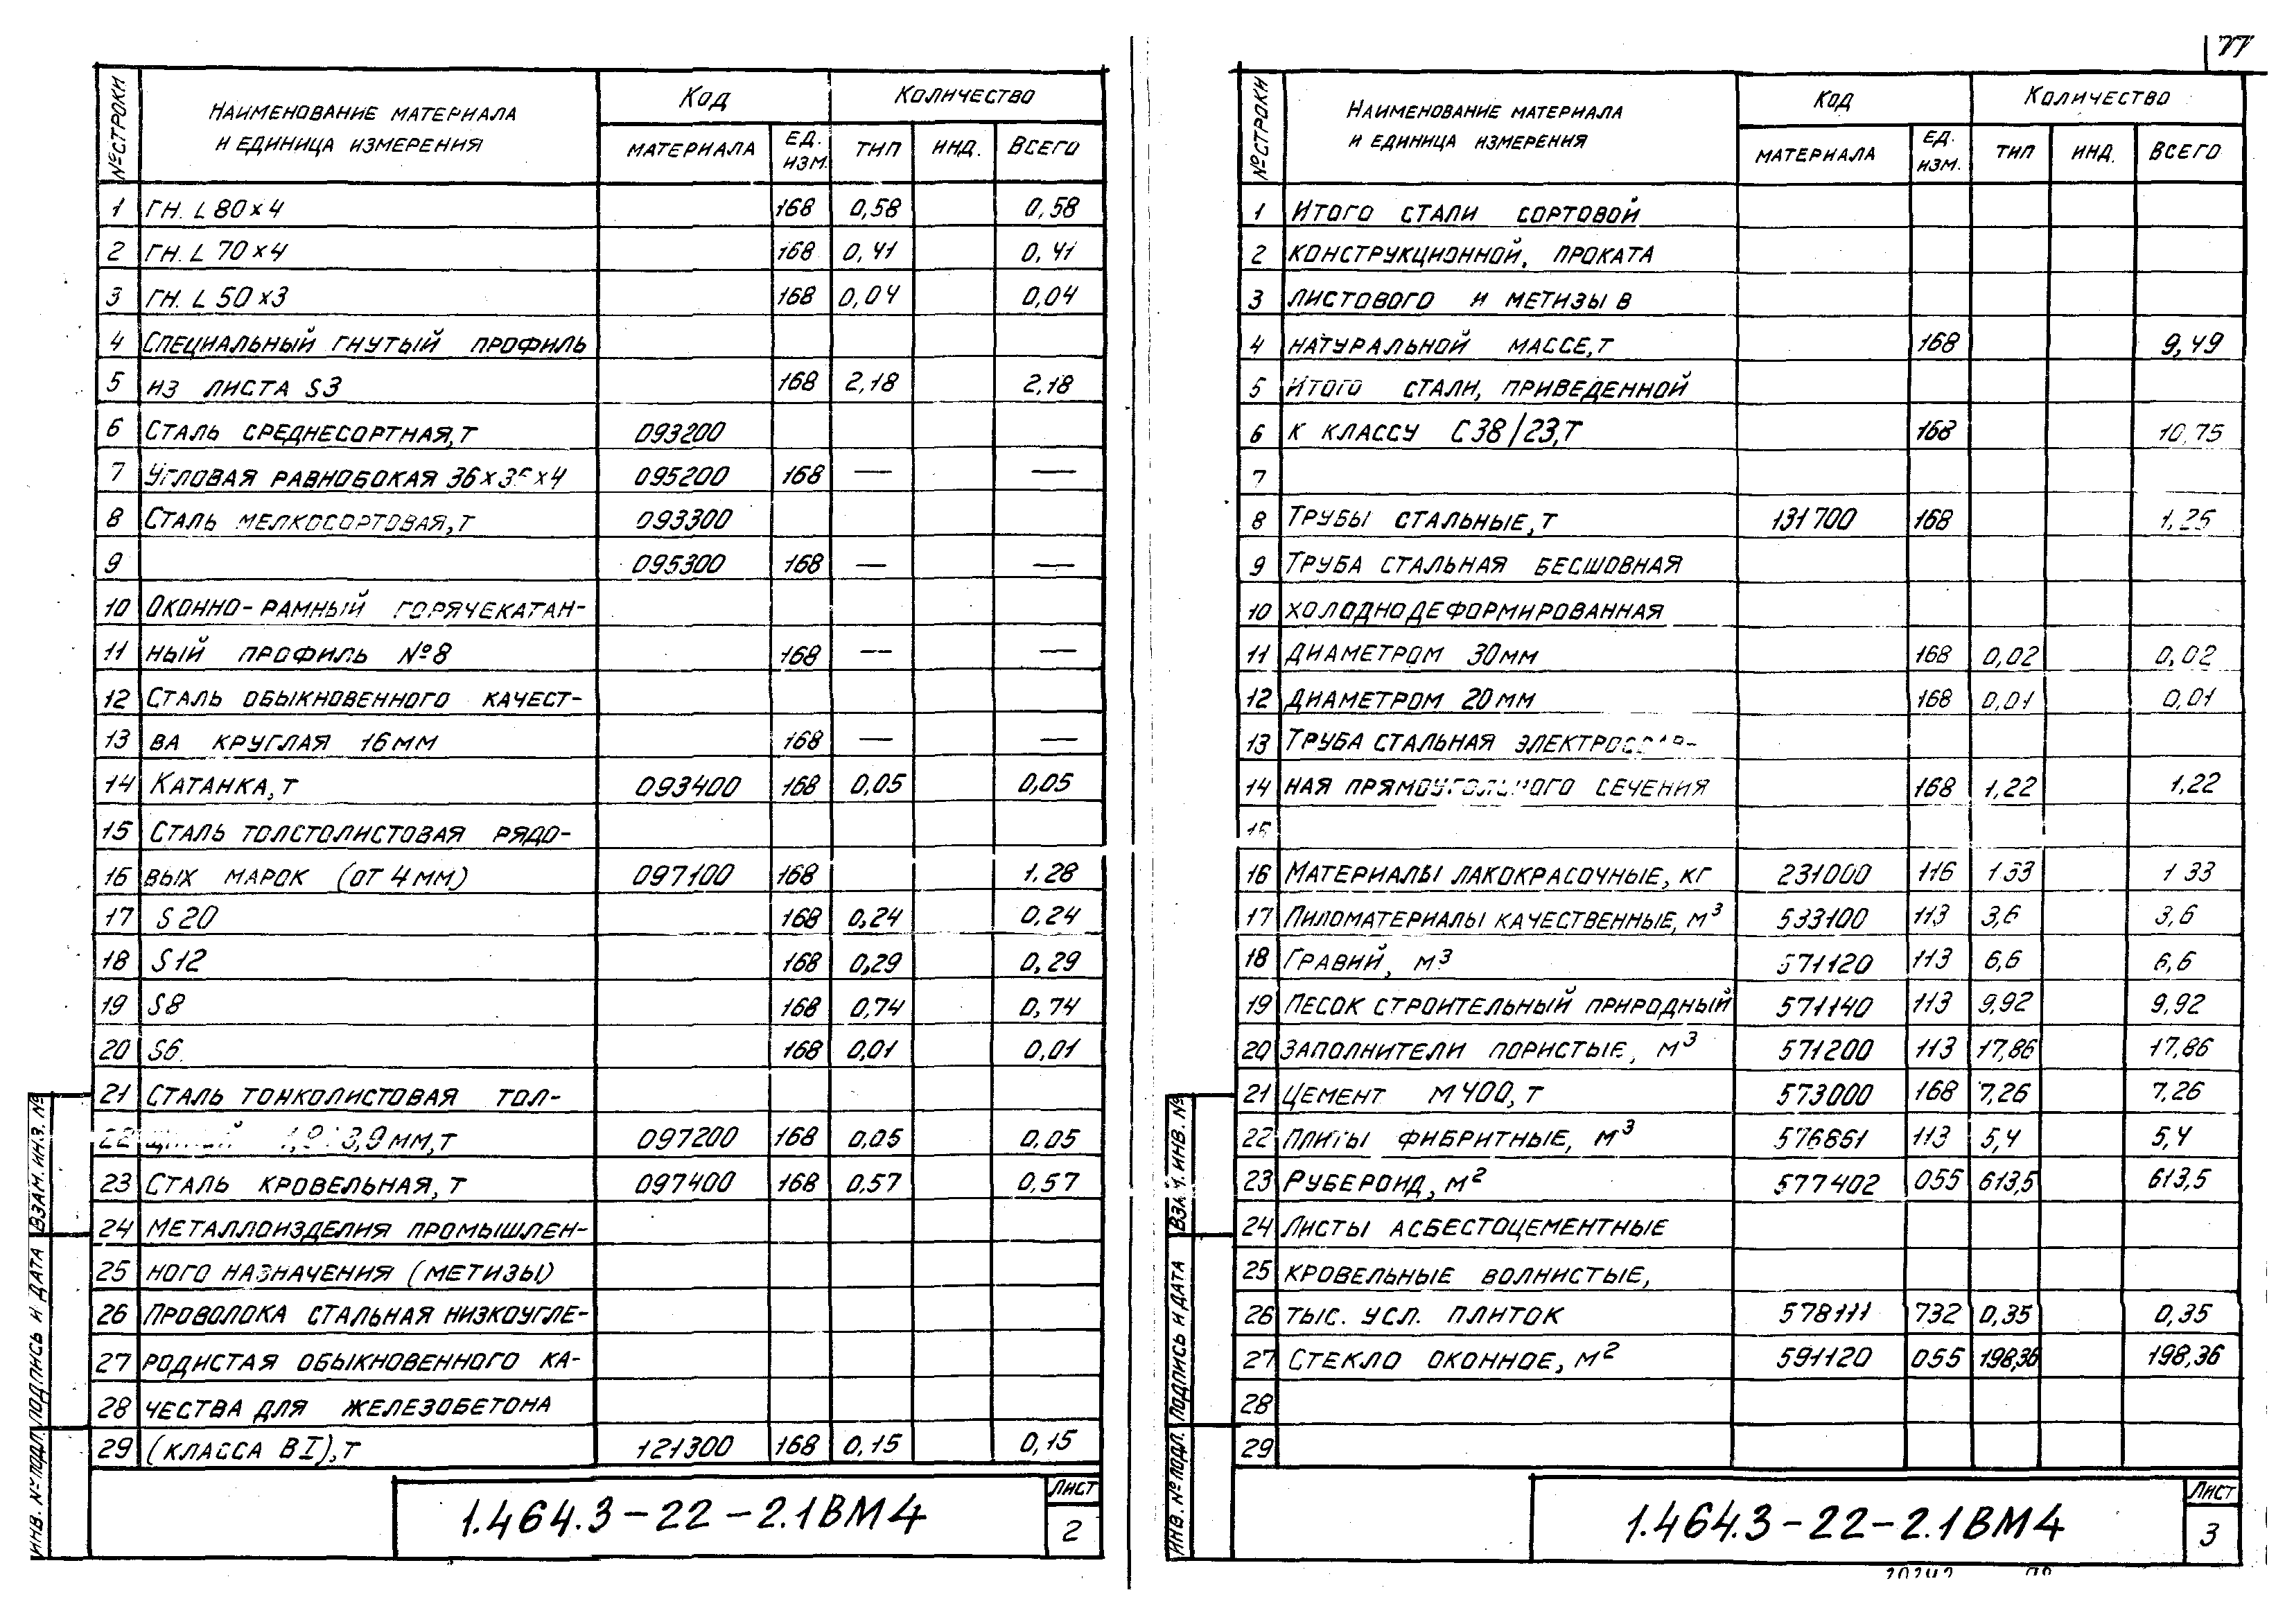 77
№ СТРОКИ НАИМЕНОВАНИЕ МАТЕРИАЛА И ЕДИНИЦА ИЗМЕРЕНИЯ КОД КОЛИЧЕСТВО
МАТЕРИАЛА ЕД. ИЗМ. ТИП ИНД. ВСЕГО
1 ГН. L 80×4 168 0,58 0,58
2 ГН. L 70×4 168 0,41 0,41
3 ГН. L 50×3 168 0,04 0,04
4 СПЕЦИАЛЬНЫЙ ГНУТЫЙ ПРОФИЛЬ
5 ИЗ ЛИСТА S3 168 2,18 2,18
6 СТАЛЬ СРЕДНЕСОРТНАЯ, Т 093200
7 УГЛОВАЯ РАВНОБОКАЯ 36×36×4 095200 168 — —
8 СТАЛЬ МЕЛКОСОРТОВАЯ, Т 093300
9 095300 168 — —
10 ОКОННО-РАМНЫЙ ГОРЯЧЕКАТАН-
11 НЫЙ ПРОФИЛЬ №8 168 — —
12 СТАЛЬ ОБЫКНОВЕННОГО КАЧЕСТ-
13 ВА КРУГЛАЯ 16ММ 168 — —
14 КАТАНКА, Т 093400 168 0,05 0,05
15 СТАЛЬ ТОЛСТОЛИСТОВАЯ РЯДО-
16 ВЫХ МАРОК (ОТ 4ММ) 097100 168 1.28
17 S20 168 0,24 0,24
18 S12 168 0,29 0,29
19 S8 168 0,74 0,74
20 S6 168 0,01 0,01
21 СТАЛЬ ТОНКОЛИСТОВАЯ ТОЛ-
22 3,9ММ, Т 097200 168 0,05 0,05
23 СТАЛЬ КРОВЕЛЬНАЯ, Т 097400 168 0.57 0,57
24 МЕТАЛЛОИЗДЕЛИЯ ПРОМЫШЛЕН-
25 НОГО НАЗНАЧЕНИЯ (МЕТИЗЫ)
26 ПРОВОЛОКА СТАЛЬНАЯ НИЗКОУГЛЕ-
27 РОДИСТАЯ ОБЫКНОВЕННОГО КА-
28 ЧЕСТВА ДЛЯ ЖЕЛЕЗОБЕТОНА
29 (КЛАССА ВI), Т 121300 168 0,15 0,15
ИНВ. № ПОДЛ. ПОДПИСЬ И ДАТА ВЗАМ. ИНВ. №
1.464.3-22-2.1ВМ4
ЛИСТ
2
№ СТРОКИ НАИМЕНОВАНИЕ МАТЕРИАЛА И ЕДИНИЦА ИЗМЕРЕНИЯ КОД КОЛИЧЕСТВО
МАТЕРИАЛА ЕД. ИЗМ. ТИП ИНД. ВСЕГО
1 ИТОГО СТАЛИ СОРТОВОЙ
2 КОНСТРУКЦИОННОЙ, ПРОКАТА
3 ЛИСТОВОГО И МЕТИЗЫ В
4 НАТУРАЛЬНОЙ МАССЕ, Т 168 9,49
5 ИТОГО СТАЛИ, ПРИВЕДЕННОЙ
6 К КЛАССУ С38/23, Т 168 10,75
7
8 ТРУБЫ СТАЛЬНЫЕ, Т 131700 168 1,25
9 ТРУБА СТАЛЬНАЯ БЕСШОВНАЯ
10 ХОЛОДНОДЕФОРМИРОВАННАЯ
11 ДИАМЕТРОМ 30ММ 168 0,02 0,02
12 ДИАМЕТРОМ 20ММ 168 0,01 0,01
13 ТРУБА СТАЛЬНАЯ ЭЛЕКТРОСВАР-
14 НАЯ ПРЯМОУГОЛЬНОГО СЕЧЕНИЯ 168 1,22 1,22
15
16 МАТЕРИАЛЫ ЛАКОКРАСОЧНЫЕ, КГ 231000 116 1 33 1 33
17 ПИЛОМАТЕРИАЛЫ КАЧЕСТВЕННЫЕ, М³ 533100 113 3,6 3,6
18 ГРАВИЙ, М³ 571120 113 6,6 6,6
19 ПЕСОК СТРОИТЕЛЬНЫЙ ПРИРОДНЫЙ 571140 113 9,92 9,92
20 ЗАПОЛНИТЕЛИ ПОРИСТЫЕ, М³ 571200 113 17,86 17,86
21 ЦЕМЕНТ М400, Т 573000 168 7,26 7,26
22 ПЛИТЫ ФИБРИТНЫЕ, М³ 576861 113 5,4 5,4
23 РУБЕРОИД, М² 577402 055 613,5 613,5
24 ЛИСТЫ АСБЕСТОЦЕМЕНТНЫЕ
25 КРОВЕЛЬНЫЕ ВОЛНИСТЫЕ,
26 ТЫС. УСЛ. ПЛИТОК 578111 732 0,35 0,35
27 СТЕКЛО ОКОННОЕ, М² 591120 055 198,36 198,36
28
29
ИНВ. № ПОДЛ. ПОДПИСЬ И ДАТА ВЗАМ. ИНВ. №
1.464.3-22-2.1ВМ4
ЛИСТ
3